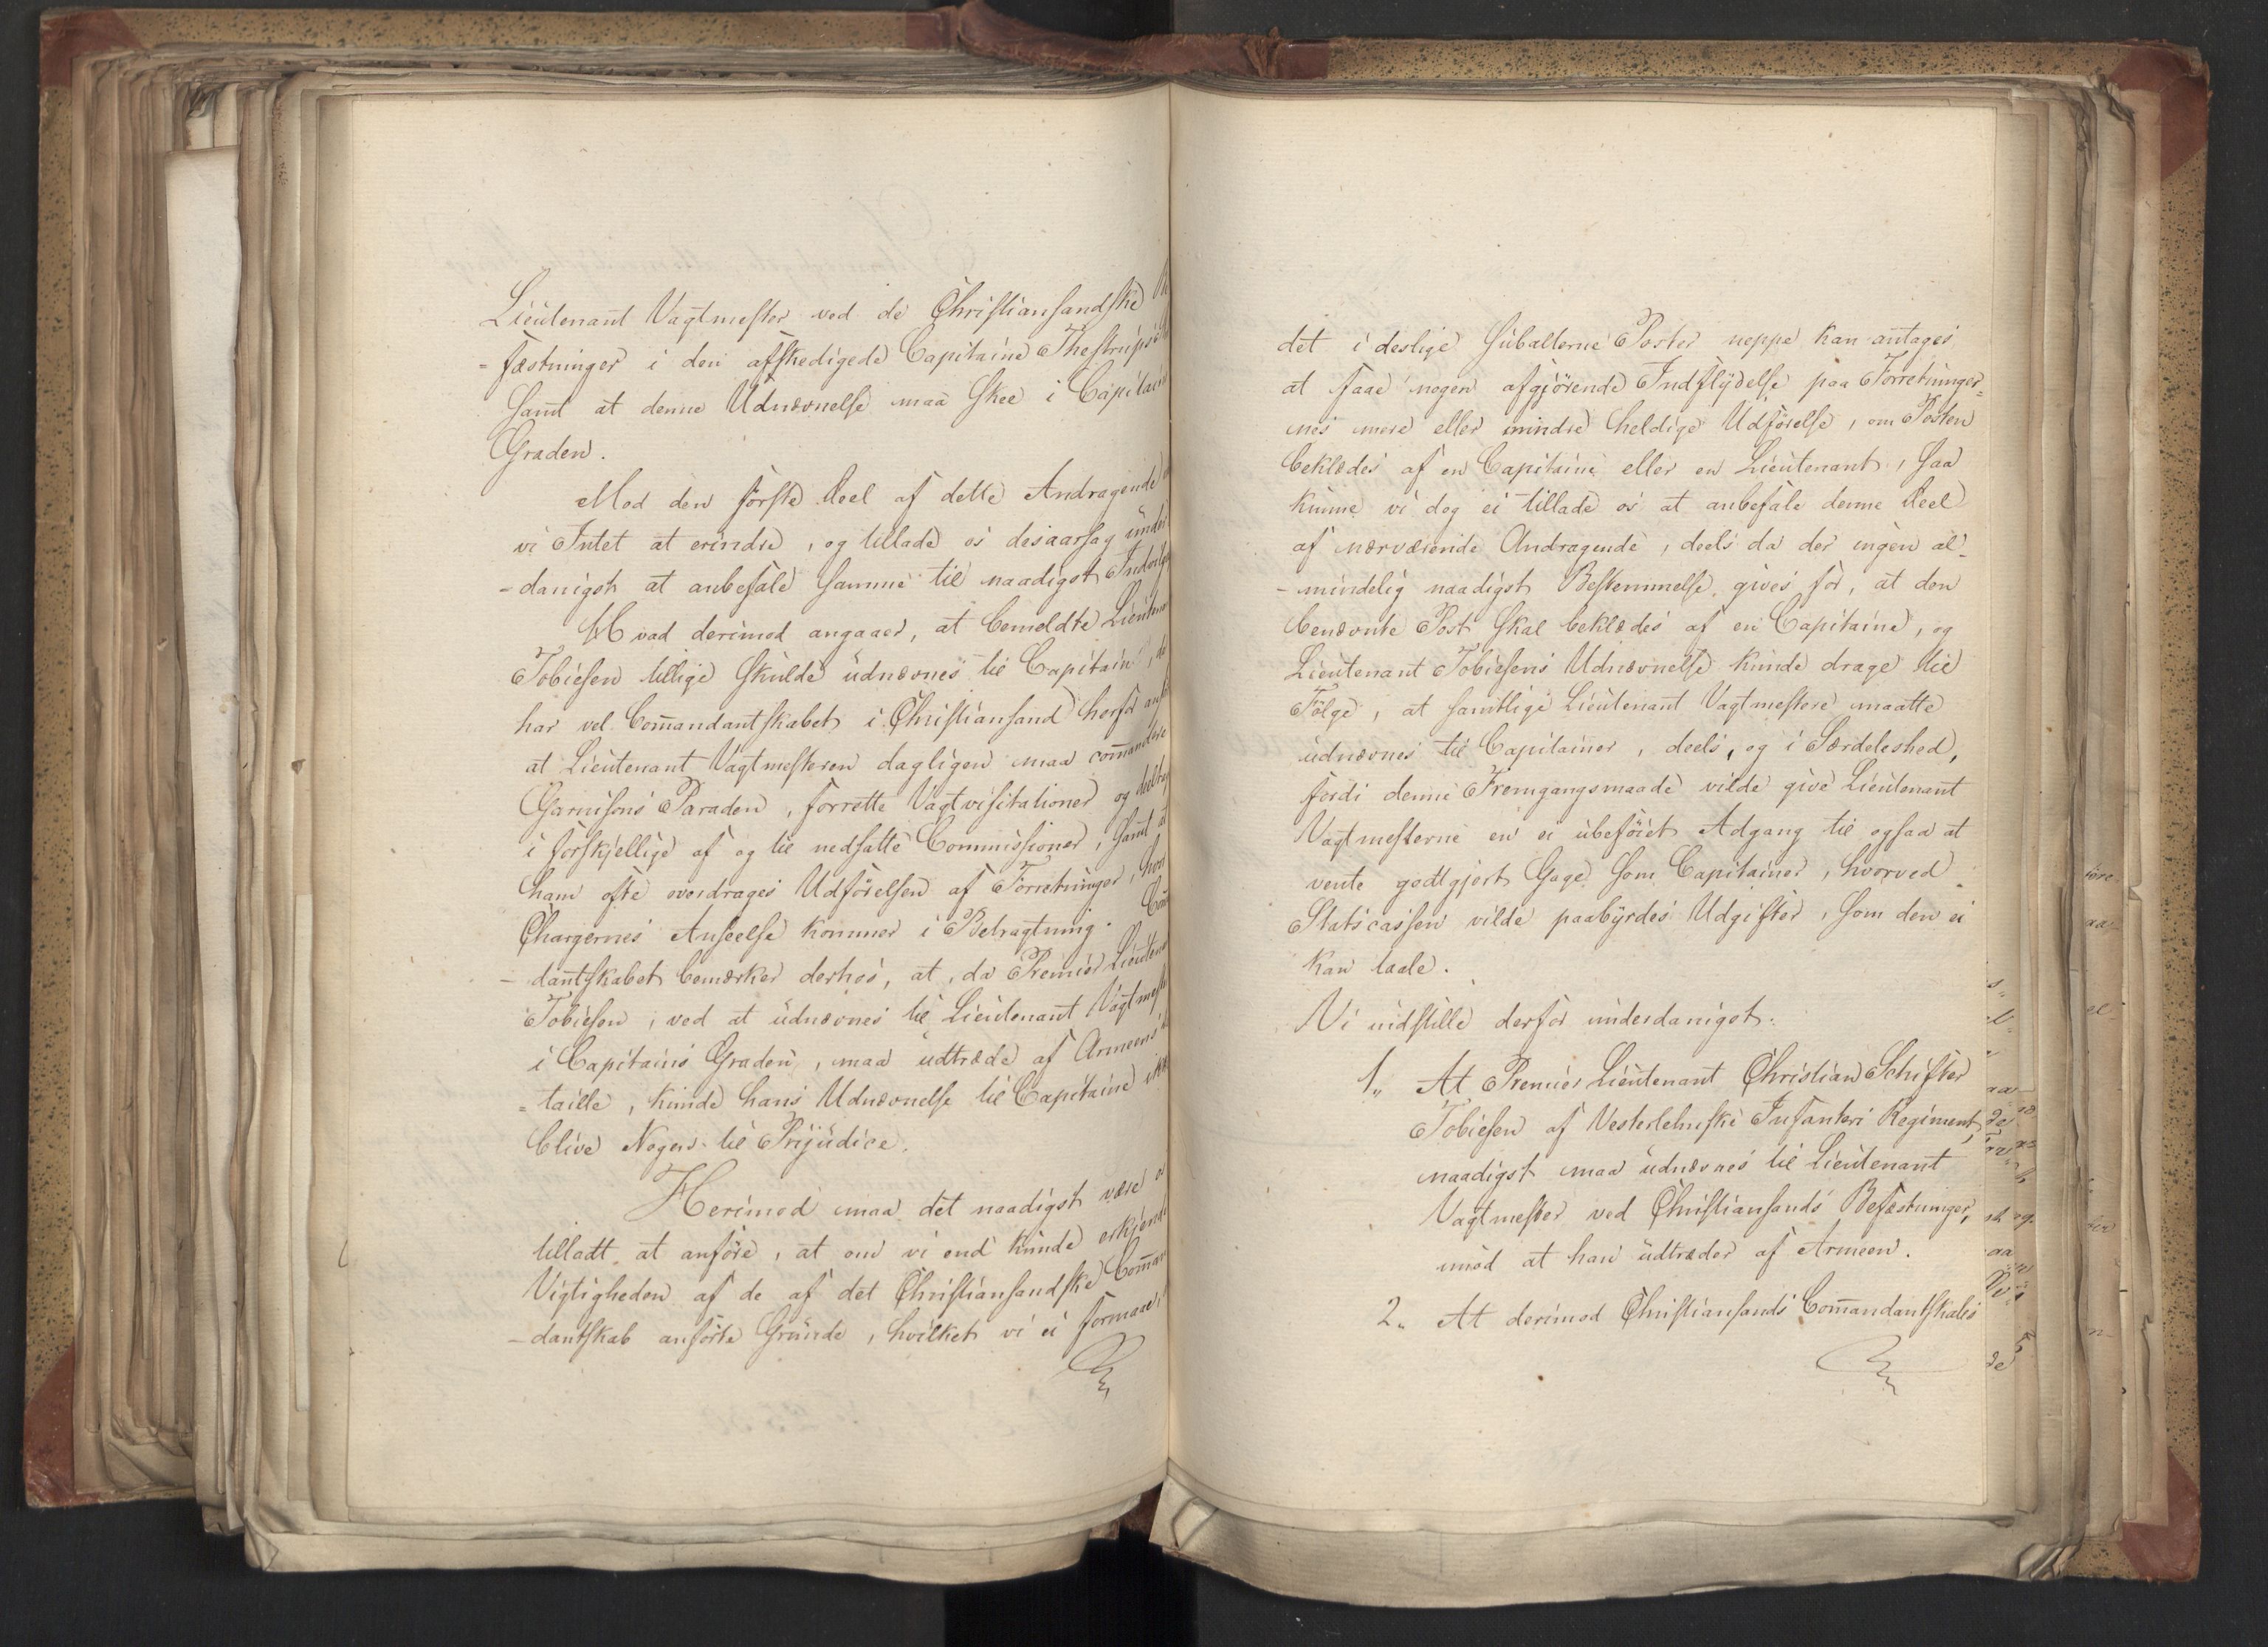 Lieutenant Vagtmester ved de Christiansandske
-fæstninger i den afskedigede Capitaine Thestrups
samt at denne Udnævnelse maa skee i Capitains
Graden.
Mod den første Deel af dette Andragende
vi Intet at erindre, og tillade os desaarsag under
-danigst at anbefale samme til naadigst
Hvad derimod angaaer, at bemeldte Lieutenant
Tobiesen tillige skulde udnævnes til Capitain,
har vel Com̄andantskabet i Christiansand herfor
at Lieutenant Vagtmesteren dagligen maa com̄andere
Garnisons Paraden, forrette Vagtvisitationer og
i forskjellige af og til nedsatte Commissioner, samt at
ham ofte overdrages Udførelsen af Forretninger, hvor
Chargernes Anseelse kommer i Betragtning. Com̄
-dantskabet bemærker derhos, at, da Premier Lieutenant
Tobiesen, ved at udnævnes til Lieutenant Vagtmester
i Capitains Graden, maa udtræde af Armeens
-taille, kunde hans Udnævnelse til Capitaine ikke
blive Nogen til Præjudice.
Herimod maa det naadigst være os
tilladt at anføre, at om vi end kunde erkjende
Vigtigheden af de af det Christiansandske Com̄an
-dantskab anførte Grunde, hvilket vi ei formaae,
det i deslige subalterne Poster neppe kan antages
at faae nogen afgjørende Indflydelse paa Forretninger-
nes mere eller mindre heldige Udførelse, om Posten
beklædes af en Capitaine eller en Lieutenant, saa
kunne vi dog ei tillade os at anbefale denne Deel
af nærværende Andragende, deels da der ingen al-
-mindelig naadigst Bestemmelse gives for, at den
benævnte Post skal beklædes af en Capitaine, og
Lieutenant Tobiesens Udnævnelse kunde drage til
Følge, at samtlige Lieutenant Vagtmestere maatte
udnævnes til Capitainer, deels, og i Særdeleshed,
fordi denne Fremgangsmaade vilde give Lieutenant
Vagtmesterne en ei ubeføiet Adgang til ogsaa at
vente godtgjort Gage som Capitainer, hvorved
Statscassen vilde paabyrdes Udgifter, som den ei
kan taale.
Vi indstille derfor underdanigst:
1.. At Premier Lieutenant Christian Schifter
Tobiesen af Vesterlehnske Infanteri Regiment,
naadigst maa udnævnes til Lieutenant
Vagtmester ved Christiansands Befæstninger,
imod at han udtræder af Armeen.
2.. At derimod Christiansands Com̄andantskabs